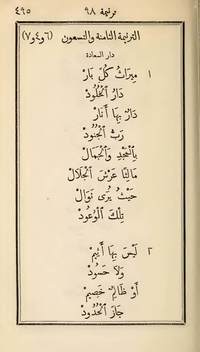 ترنيمة ٩٨ ٤٩٥
الترنيمة الثامنة والتسعون (٦و٤و٧)
دار السعادة
١ مِيرَاثُ كُلِّ بَارْ
دَارُ ٱلْخُلُودْ
دَارٌ بِهَا أَنَارْ
رَبُّ ٱلْجُنُودْ
بِٱلْمَجْدِ وَٱلْجَمَالْ
مَالِئًا عَرْشَ ٱلْجَلَالْ
حَيْثُ يُرَى نَوَالْ
تِلْكَ ٱلْوُعُودْ
٢ لَيْسَ بِهَا أَثِيمْ
وَلَا حَسُودْ
أَوْ ظَالِمٌ خَصِيمْ
جَازَ ٱلْحُدُودْ